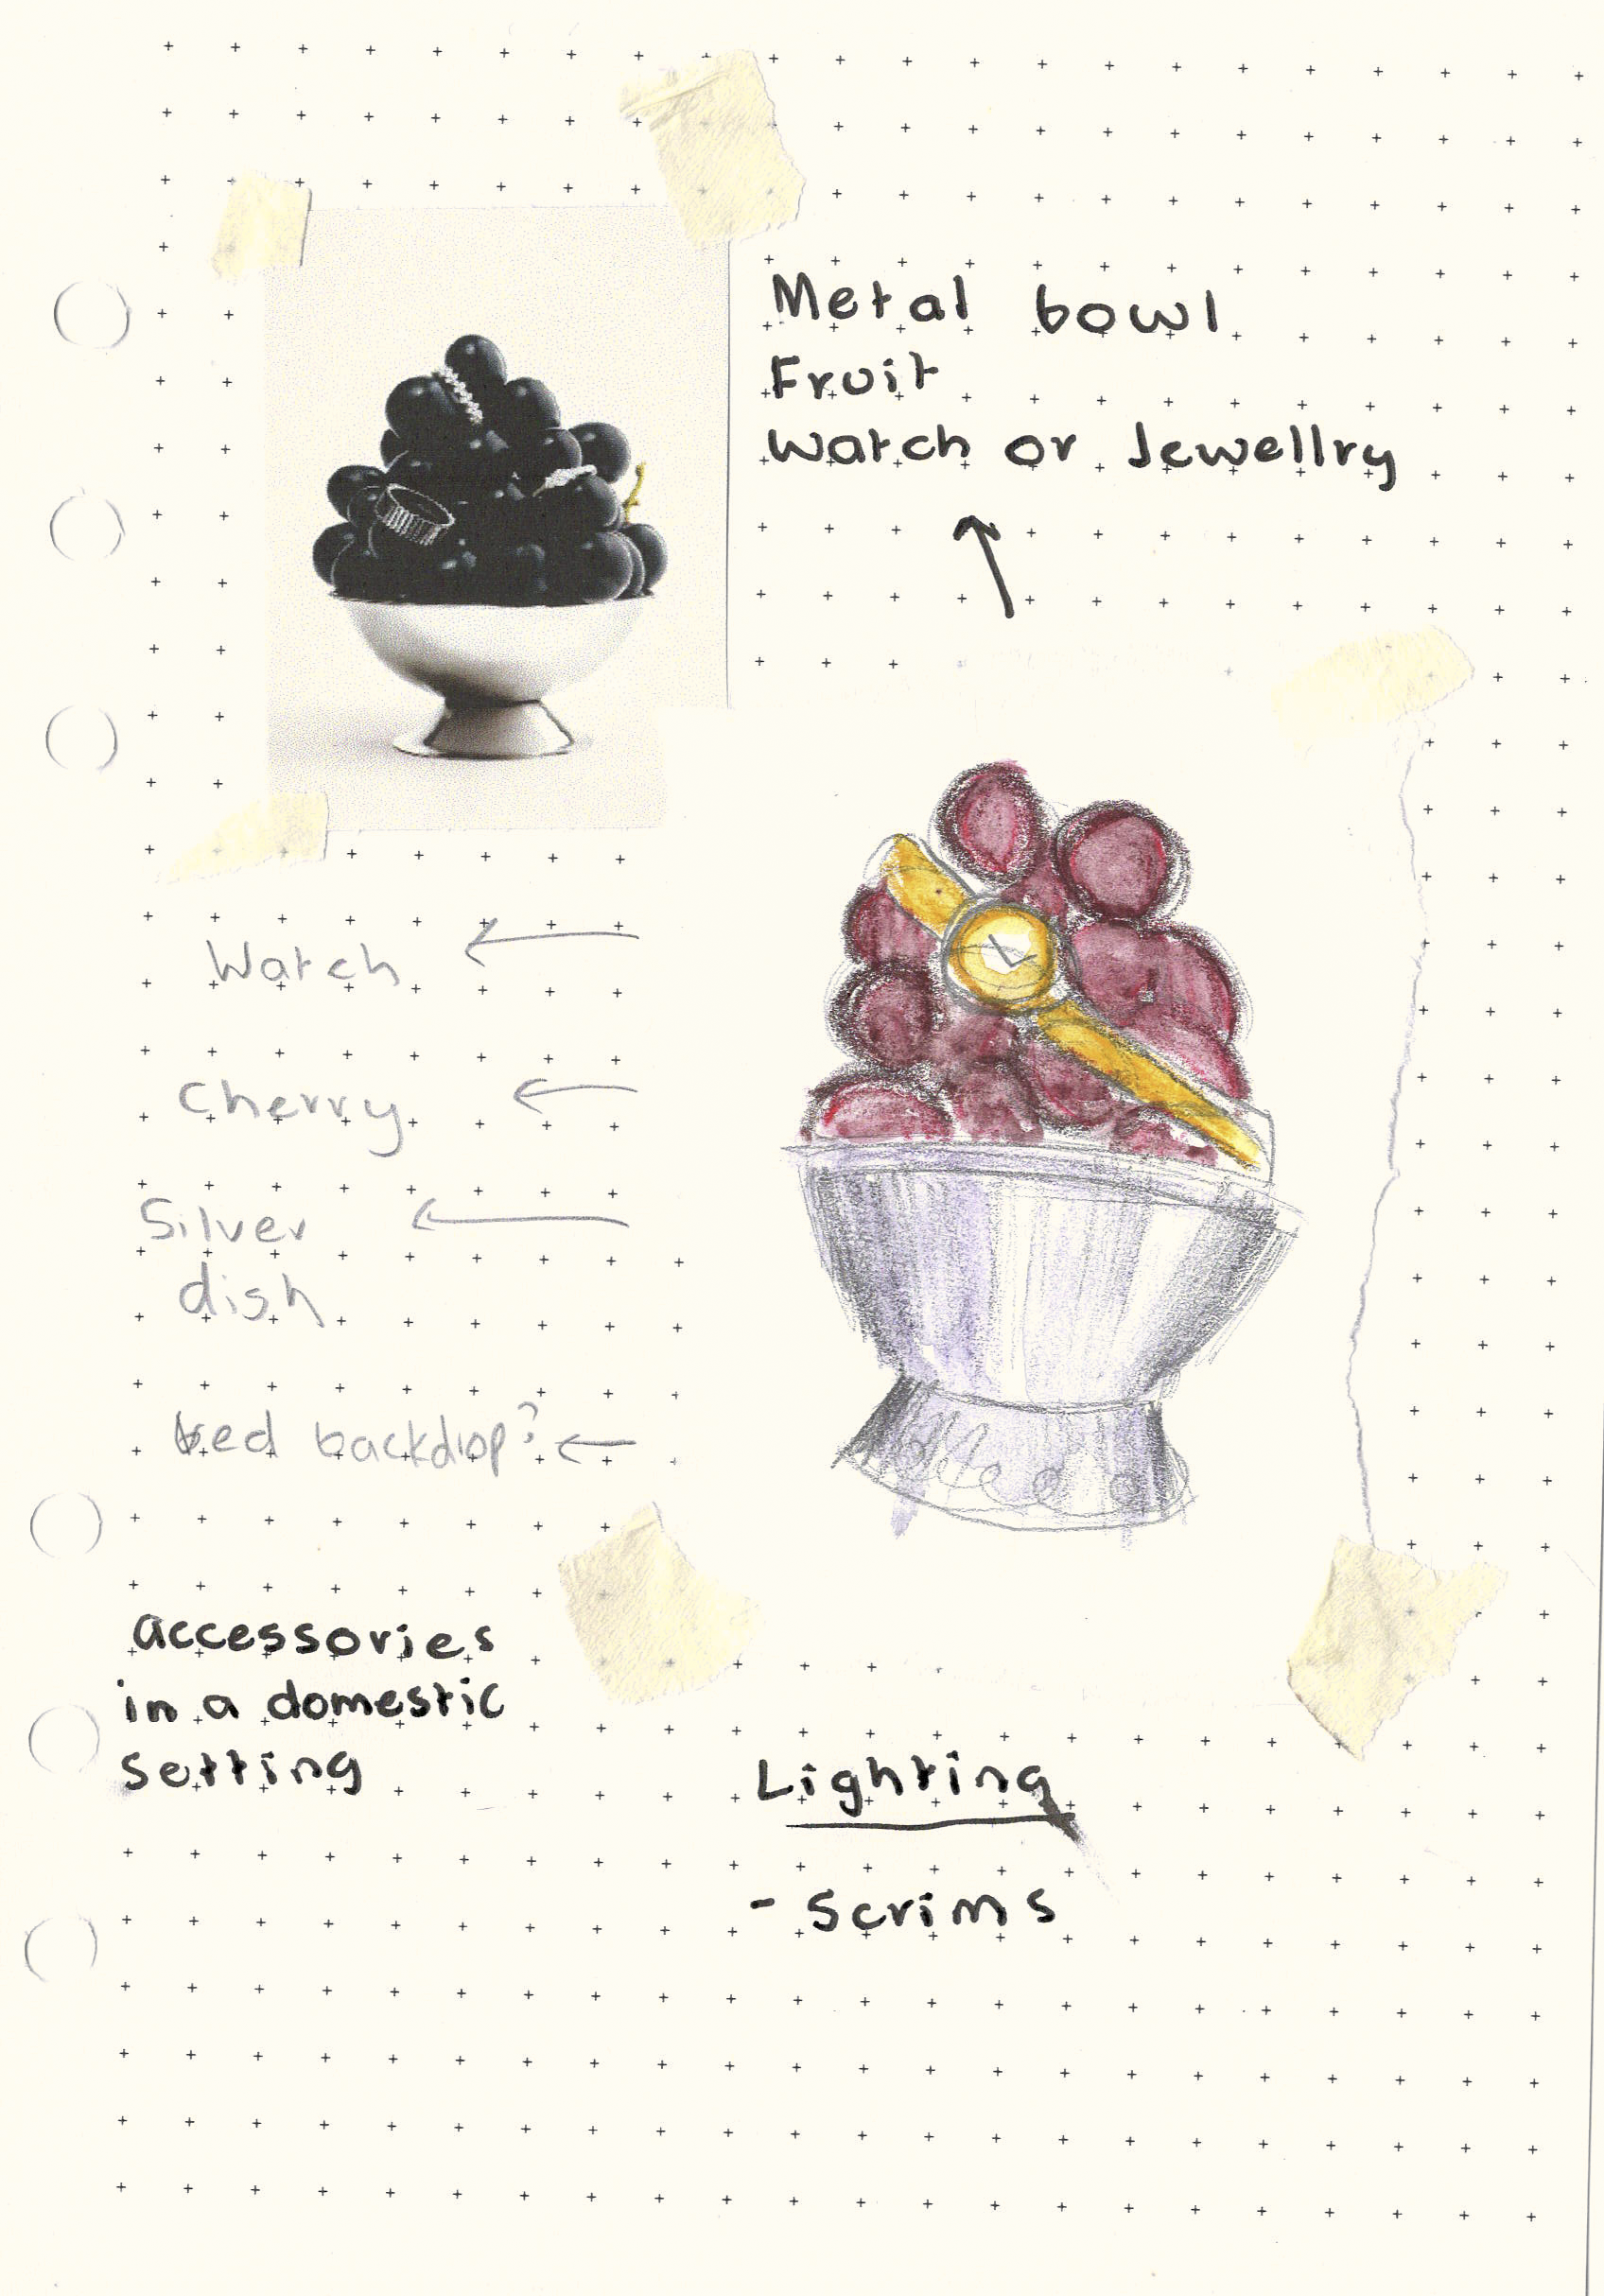 Metal bowl
Fruit
Watch or Jewellry
Watch
Cherry
Silver
dish
red backdrop?
accessories
in a domestic
setting
Lighting
- Scrims